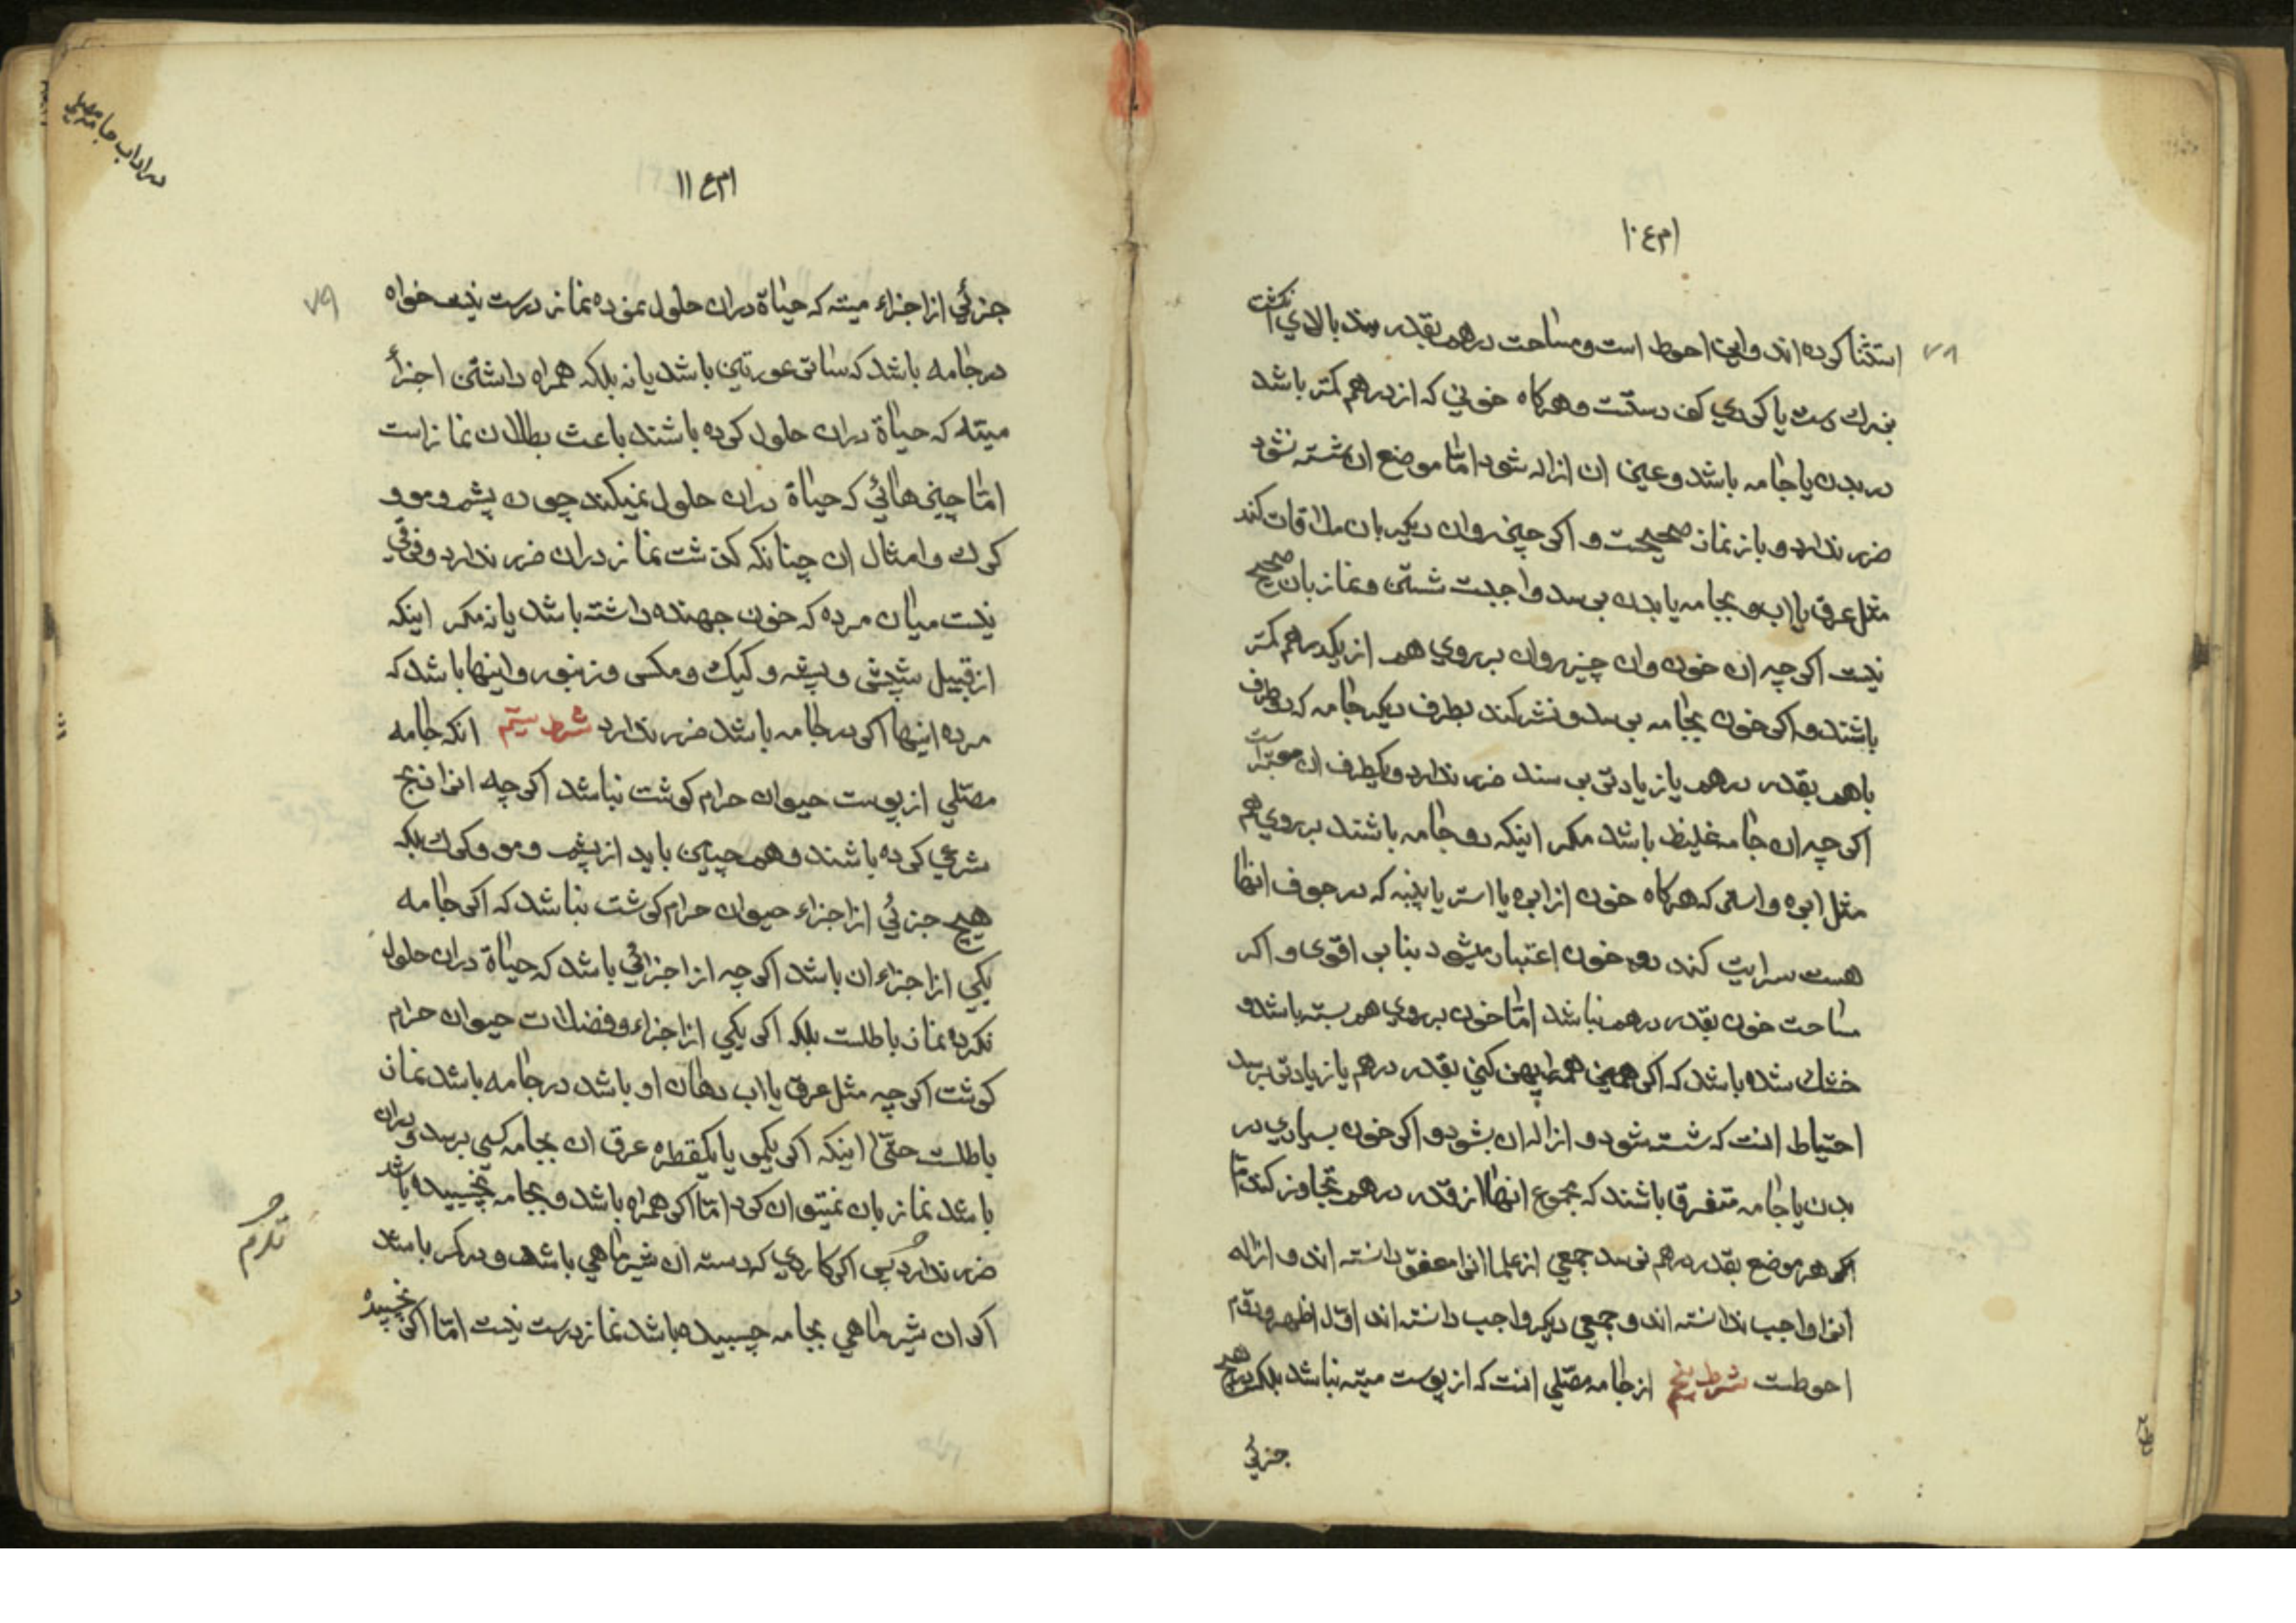 ۷۸
استثنا کرده اند و این احوط است و مساحت درهم بقدر بند بالای انکشت
بزرك دست یا کودی کف دستست و هرکاه خونی که از درهم کمتر باشد
در بدن یا جامه باشد و عین ان ازاله شود امّا موضع ان شسته نشود
ضرر ندارد و باز نماز صحیحست و اکر چیز روان دیکر بان ملاقات کند
مثل عرق یا اب و بجامه یا بدن برسد واجبست شستن و نماز بان صحیح
نیست اکر چه ان خون وان چیز روان بر روی هم از یکدرهم کمتر
باشند و اکر خون بجامه برسد و نشر کند بطرف دیکر جامه که دو طرف
باهم بقدر درهم یا زیادتی برسند ضرر ندارد و یکطرف ان معتبر است
اکر چه ان جامه غلیظ باشد مکر اینکه دو جامه باشند بر روی هم
مثل ابره و استر که هرکاه خون از ابره یا استر یا پنبه که در جوف انها
هست سرایت کند دو خون اعتبار میشود بنابر اقوی و اکر
مساحت خون بقدر درهم نباشد امّا خون بر روی هم بسته باشد و
خشك شده باشد که اکر همین همه را پهن کنی بقدر درهم یا زیادتی برسد
احتیاط انست که شسته شود و ازاله ان بشود و اکر خون بسیاری در
بدن یا جامه متفرق باشند که مجموع انها از قدر درهم تجاوز کند امّا
اکر هر موضع بقدر درهم نرسد جمعی از علما انرا معفوّ دانسته اند و ازاله
انرا واجب ندانسته اند و جمعی دیکر واجب دانسته اند اوّل اظهر و دوّم
احوطست شرط پنجم از جامه مصلّی انست که از پوست میته نباشد بلکه هیچ
جزئی
۷۹
جزئی از اجزاء میته که حیاة دران حلول نموده نماز درست نیست خواه
در جامه باشد که ساتر عورتین باشد یا نه بلکه همراه داشتن اجزأ
میته که حیاة دران حلول کرده باشند باعث بطلان نماز است
امّا چیزهائی که حیاة دران حلول نمیکند چون پشم و مو و
کرك و امثال ان چنانکه کذشت نماز دران ضرر ندارد و فرقی
نیست میان مرده که خون جهنده داشته باشد یا نه مکر اینکه
از قبیل شپش و پشه و کیك و مکس و زنبور و اینها باشد که
مرده اینها اکر در جامه باشد ضرر ندارد شرط ستّم انکه جامه
مصلّی از پوست حیوان حرام کوشت نباشد اکر چه انرا ذبح
شرعی کرده باشند و همچنین باید از پشم و مو و کرك بلکه
هیچ جزئی از اجزاء حیوان حرام کوشت نباشد که اکر جامه
یکی از اجزاء ان باشد اکر چه از اجزائی باشد که حیاة دران حلول
نکرده نماز باطلست بلکه اکر یکی از اجزاء و فضلات حیوان حرام
کوشت اکر چه مثل عرق یا اب دهان او باشد در جامه باشد نماز
باطلست حتّی اینکه اکر یکمو یا یکقطره عرق ان بجامه کسی برسد و دران
باشد نماز بان نمیتوان کرد امّا اکر همراه باشد و بجامه نچسبیده باشد
ضرر ندارد پس اکر کاردی که دسته ان شیر ماهی باشد و در کمر باشد
اکر ان شیر ماهی بجامه چسبیده باشد نماز درست نیست امّا اکر نچسبیده